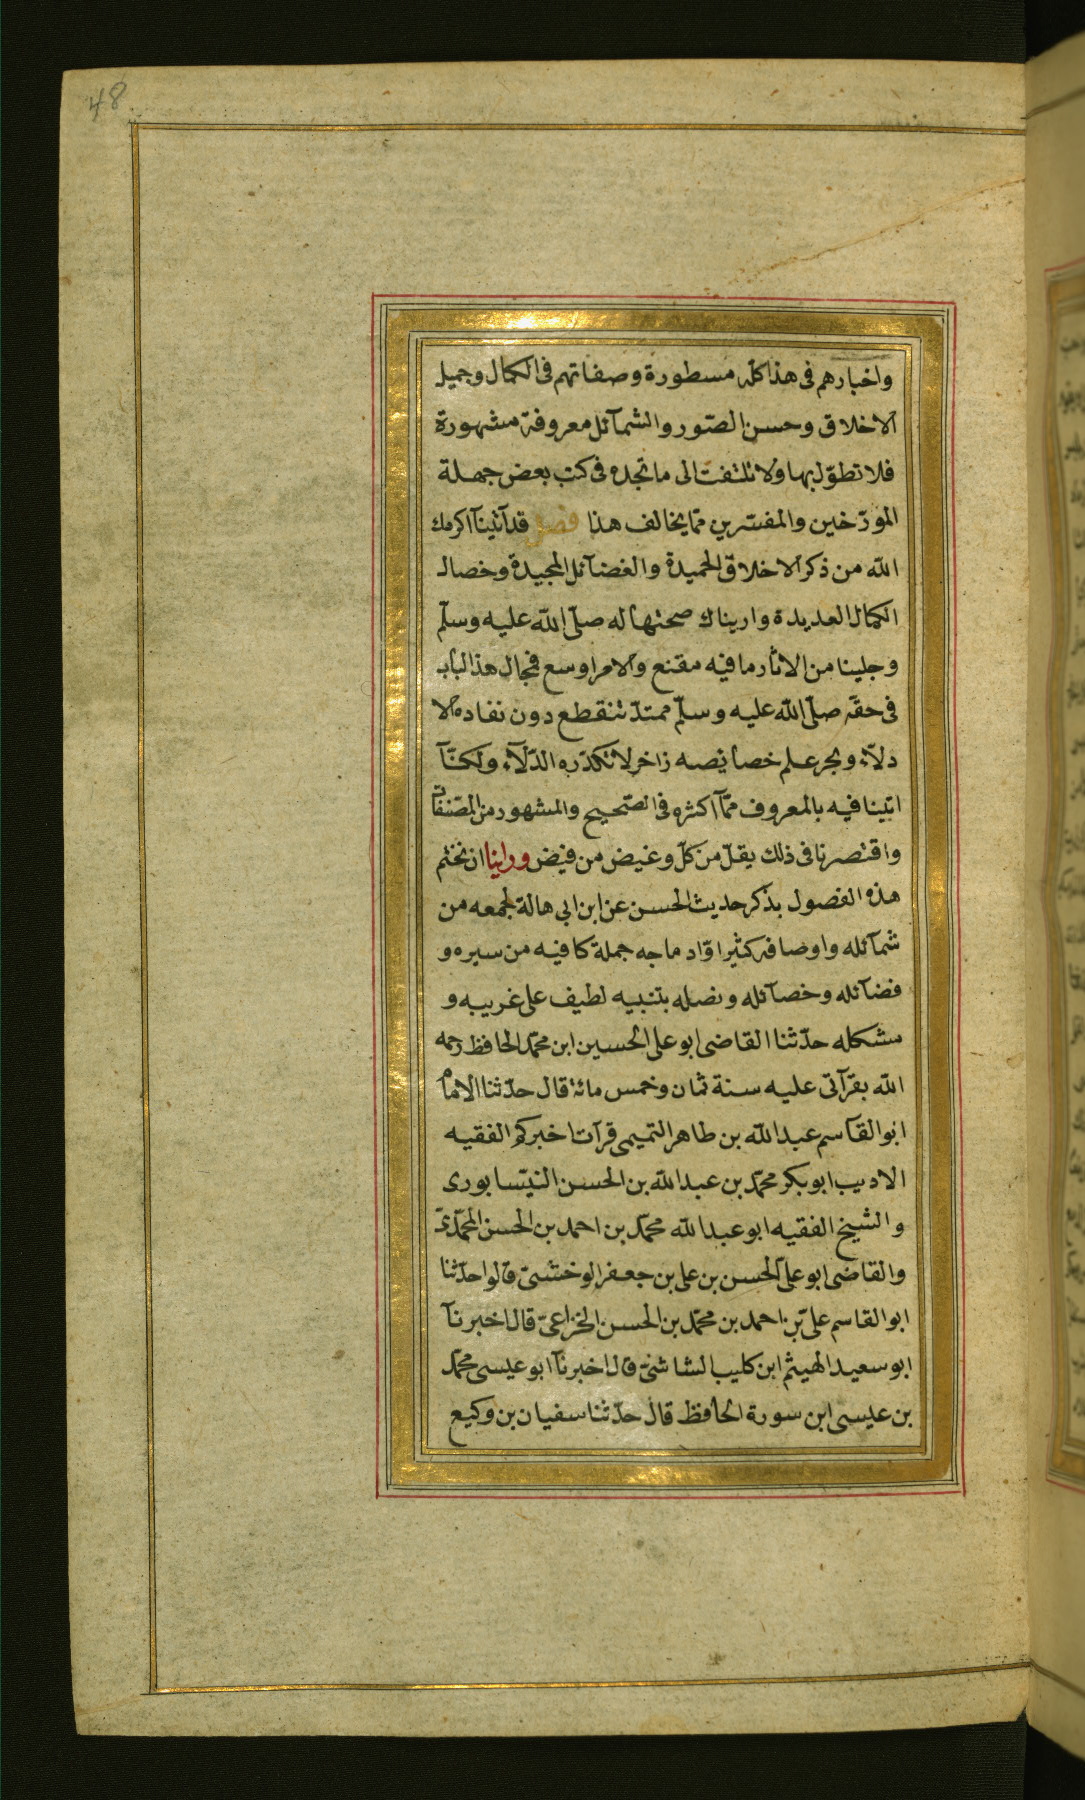 48
واخبارهم فى هذا كلّه مسطورة وصفاتهم فى الكمال وجميل
الاخلاق وحسن الصّور والشمآئل معروفة مشهورة
فلا نطوّل بها ولا تلتفت الى ما تجده فى كتب بعض جهلة
المورّخين والمفسّرين ممّا يخالف هذا فصل قد آتينآ اكرمك
اللّه من ذكر الاخلاق الحميدة والفضآئل المجيدة وخصال
الكمال العديدة واريناك صحتها له صلّى اللّه عليه وسلّم
وجلينا من الاثار ما فيه مقنع والامر اوسع فمجال هذا الباب
فى حقّه صلّى اللّه عليه وسلّم ممتدّ تنقطع دون نفاده الا
دلّاء وبحر علم خصايصه زاخر لا تكدّره الدّلآء ولكنّآ
اتينا فيه بالمعروف ممّآ اكثره فى الصّحيح والمشهور من المصّنفات
واقتصرنا فى ذلك بقلّ من كلّ وغيض من فيض وراينا ان نختم
هذه الفصول بذكر حديث الحسن عن ابن ابى هالة لجمعه من
شمآئله واوصافه كثيرا وّاد ماجه جملة كافيه من سيره و
فضآئله وخصآئله ونصله بتنبيه لطيف على غريبه و
مشكله حدّثنا القاضى ابو على الحسين ابن محمّد الحافظ رحمه
اللّه بقرآتى عليه سنة ثمان وخمس مائة قال حدّثنا الامام
ابو القاسم عبد اللّه بن طاهر التميمى قرآت اخبركم الفقيه
الاديب ابو بكر محمّد بن عبد اللّه بن الحسن النيّسابورى
والشيخ الفقيه ابو عبد اللّه محمّد بن احمد بن الحسن المحمّدىّ
والقاضى ابو علىّ الحسن بن على بن جعفر الوخشىّ قالوا حدّثنا
ابو القاسم علىّ بن احمد بن محمّد بن الحسن الخزاعىّ قال اخبرنآ
ابو سعيد الهيثم ابن كليب الشاشىّ قال اخبرنآ ابو عيسى محمّد
بن عيسى ابن سورة الحافظ قال حدّثنا سفيان بن وكيع